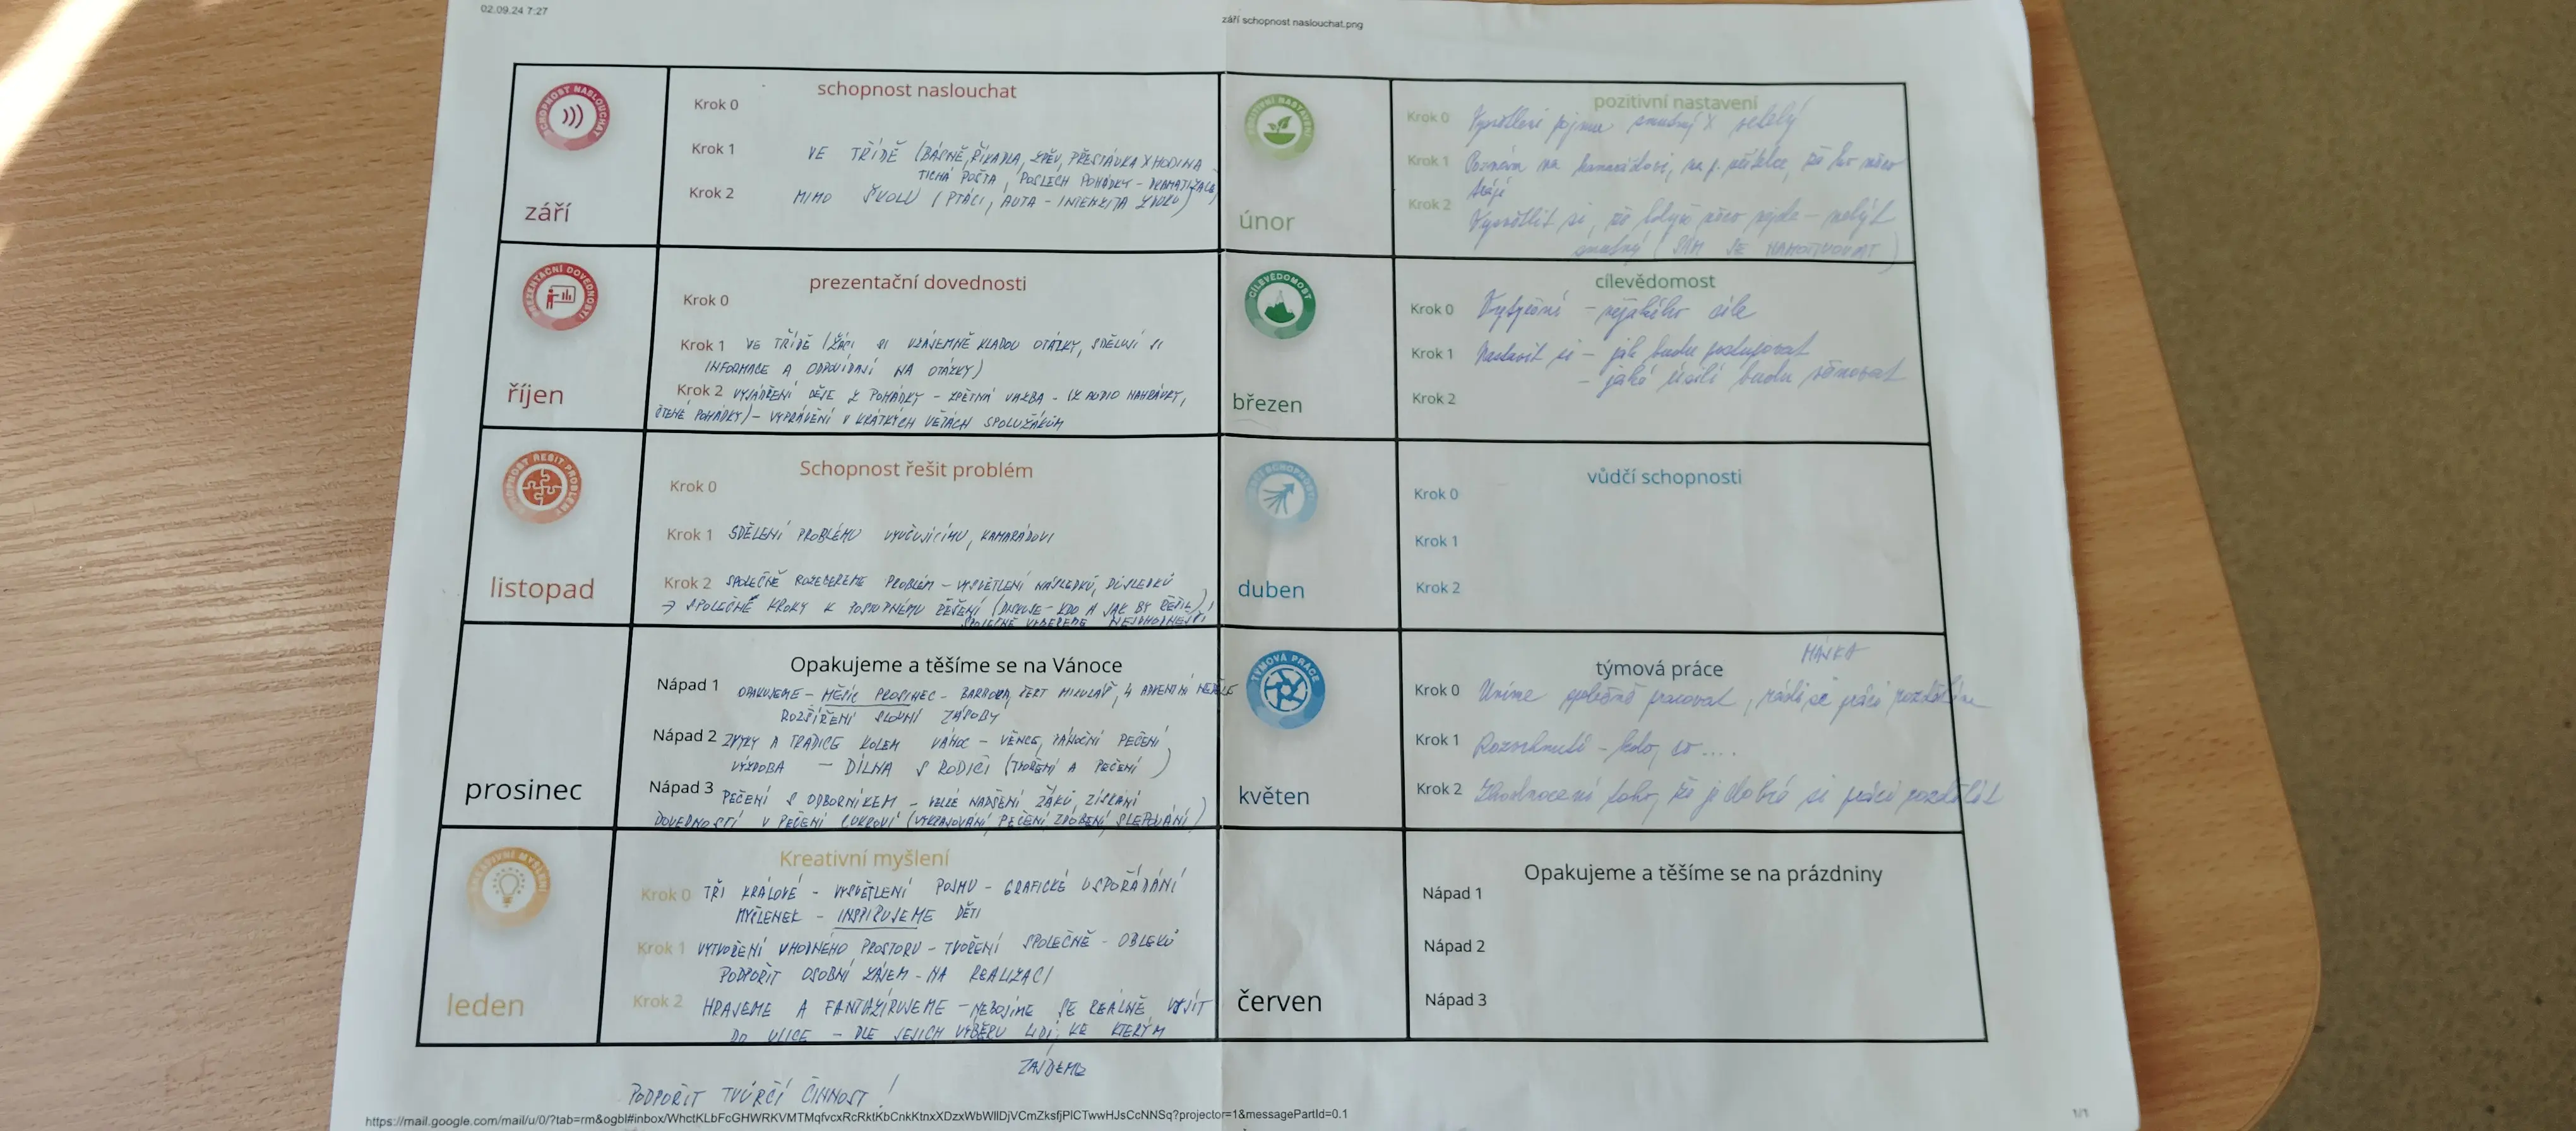 02.09.24 7:27
září schopnost naslouchat.png
SCHOPNOST NASLOUCHAT
září
schopnost naslouchat
Krok 0
Krok 1 VE TŘÍDĚ (BÁSNĚ, ŘÍKADLA, ZPĚV, PŘESTÁVKA X HODINA
TICHÁ POŠTA, POSLECH POHÁDKY - DRAMATIZACE)
Krok 2 MIMO ŠKOLU (PTÁCI, AUTA - INTENZITA ZVUKU)
PREZENTAČNÍ DOVEDNOSTI
říjen
prezentační dovednosti
Krok 0
Krok 1 VE TŘÍDĚ (ŽÁCI SI VZÁJEMNĚ KLADOU OTÁZKY, SDĚLUJÍ SI
INFORMACE A ODPOVÍDAJÍ NA OTÁZKY)
Krok 2 VYJÁDŘENÍ DĚJE Z POHÁDKY - ZPĚTNÁ VAZBA - (Z AUDIO NAHRÁVKY,
ČTENÉ POHÁDKY) - VYPRÁVĚNÍ V KRÁTKÝCH VĚTÁCH SPOLUŽÁKŮM
SCHOPNOST ŘEŠIT PROBLÉMY
listopad
Schopnost řešit problém
Krok 0
Krok 1 SDĚLENÍ PROBLÉMU VYUČUJÍCÍMU, KAMARÁDOVI
Krok 2 SPOLEČNĚ ROZEBEREME PROBLÉM - VYSVĚTLENÍ NÁSLEDKŮ, DŮSLEDKŮ
→ SPOLEČNÉ KROKY K POSTUPNÉMU ŘEŠENÍ (DISKUSE - KDO A JAK BY ŘEŠIL),
SPOLEČNĚ VYBEREME NEJVHODNĚJŠÍ
prosinec
Opakujeme a těšíme se na Vánoce
Nápad 1 OPAKUJEME - MĚSÍC PROSINEC - BARBORA, ČERT MIKULÁŠ, 4 ADVENTNÍ NEDĚLE
ROZŠÍŘENÍ SLOVNÍ ZÁSOBY
Nápad 2 ZVYKY A TRADICE KOLEM VÁNOC - VĚNCE, VÁNOČNÍ PEČENÍ
VÝZDOBA - DÍLNA S RODIČI (TVOŘENÍ A PEČENÍ)
Nápad 3 PEČENÍ S ODBORNÍKEM - VELKÉ NADŠENÍ ŽÁKŮ, ZÍSKÁNÍ
DOVEDNOSTÍ V PEČENÍ CUKROVÍ (VYKRAJOVÁNÍ, PEČENÍ, ZDOBENÍ, SLEPOVÁNÍ)
KREATIVNÍ MYŠLENÍ
leden
Kreativní myšlení
Krok 0 TŘI KRÁLOVÉ - VYSVĚTLENÍ POJMU - GRAFICKÉ USPOŘÁDÁNÍ
MYŠLENEK - INSPIRUJEME DĚTI
Krok 1 VYTVOŘENÍ VHODNÉHO PROSTORU - TVOŘENÍ SPOLEČNĚ - OBLEKŮ
PODPOŘIT OSOBNÍ ZÁJEM - NA REALIZACI
Krok 2 HRAJEME A FANTAZÍRUJEME - NEBOJÍME SE REÁLNĚ VYJÍT
DO ULICE - DLE JEJICH VÝBĚRU LIDÍ, KE KTERÝM
ZAJDEME
PODPOŘIT TVŮRČÍ ČINNOST!
POZITIVNÍ NASTAVENÍ
únor
pozitivní nastavení
Krok 0 Vysvětlení pojmu smutný X veselý
Krok 1 Poznám na kamarádovi, na p. učitelce, že ho něco
trápí
Krok 2
Vysvětlit si, že když něco nejde - nebýt
smutný (SÁM SE NAMOTIVOVAT)
CÍLEVĚDOMOST
březen
cílevědomost
Krok 0 Vytyčení - nějakého cíle
Krok 1 Nastavit si - jak budu postupovat
- jaké úsilí budu věnovat
Krok 2
duben
vůdčí schopnosti
Krok 0
Krok 1
Krok 2
TÝMOVÁ PRÁCE
květen
týmová práce
MÁJKA
Krok 0 Umíme společně pracovat, rádi si práci rozdělíme
Krok 1 Rozvrhnutí - kdo, co ....
Krok 2 Zhodnocení toho, že je dobré si práci rozdělit
červen
Opakujeme a těšíme se na prázdniny
Nápad 1
Nápad 2
Nápad 3
https://mail.google.com/mail/u/0/?tab=rm&ogbl#inbox/WhctKLbFcGHWRKVMTMqfvcxRcRktKbCnkKtnxXDzxWbWllDjVCmZksfjPlCTwwHJsCcNNSq?projector=1&messagePartId=0.1
1/1